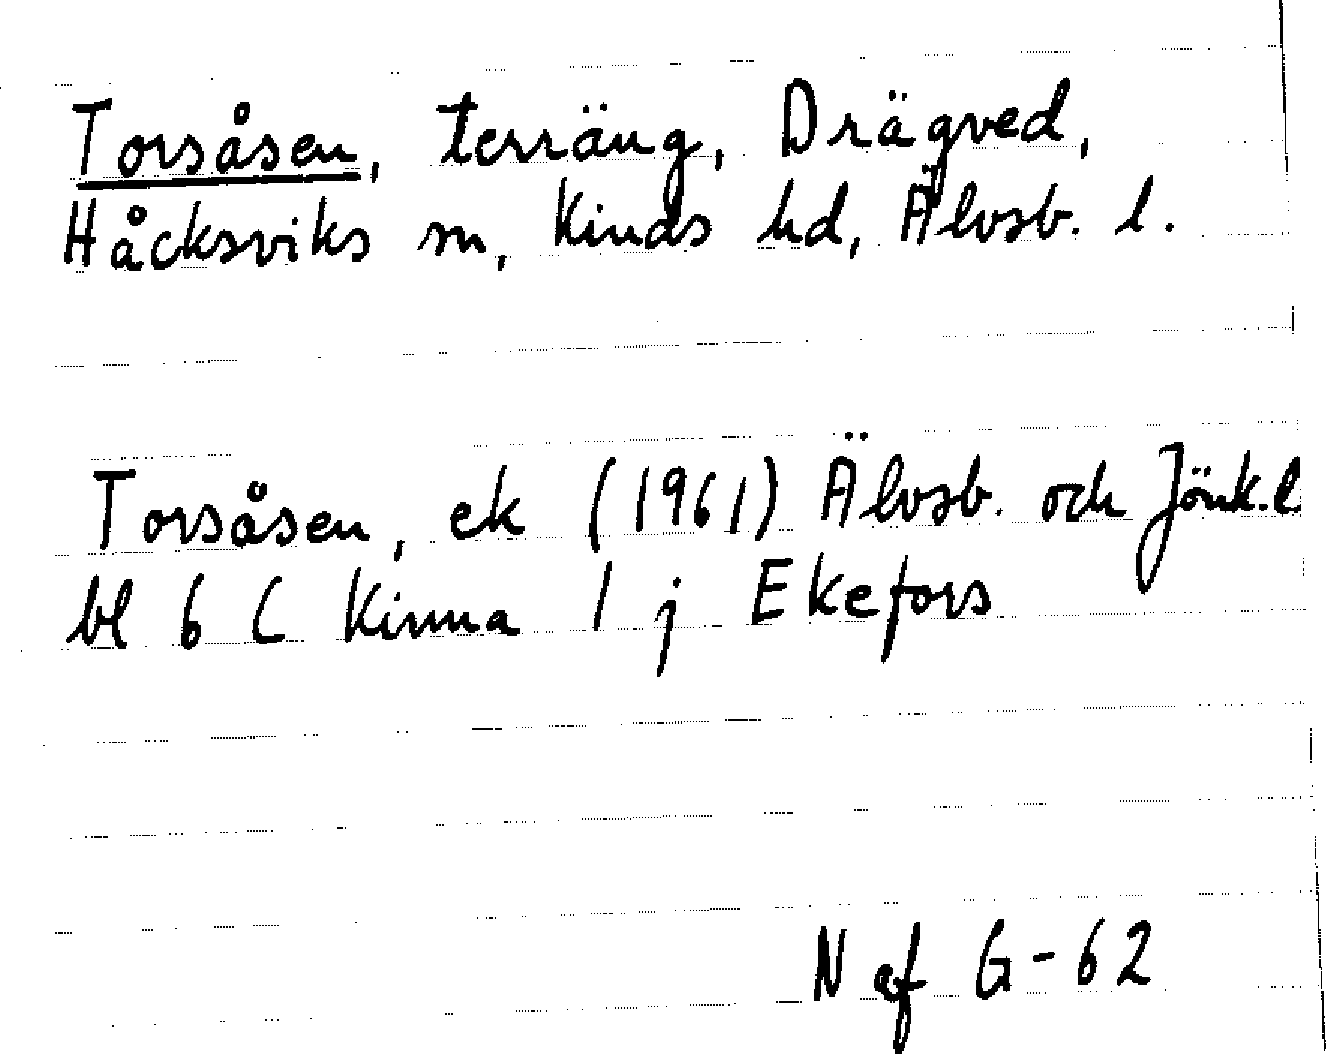 Torsåsen, terräng, Drägved,
Håcksviks sn, Kinds hd, Älvsb. l.
Torsåsen, ek (1961) Älvsb. och Jönk. l.
bl 6 C Kinna 1 j Ekefors
N af G-62